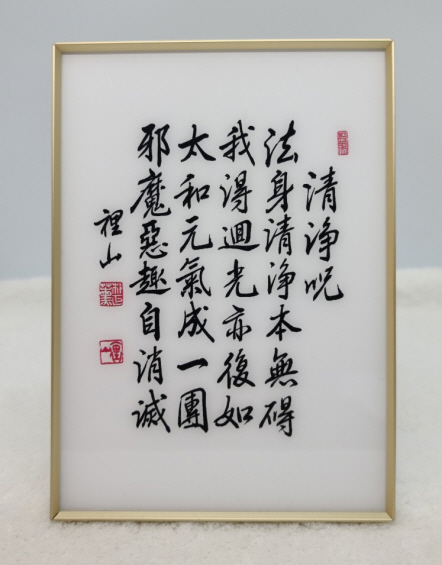 清净呪
法身清净本無碍
我得迴光亦復如
太和元氣成一團
邪魔惡趣自消滅
裡山